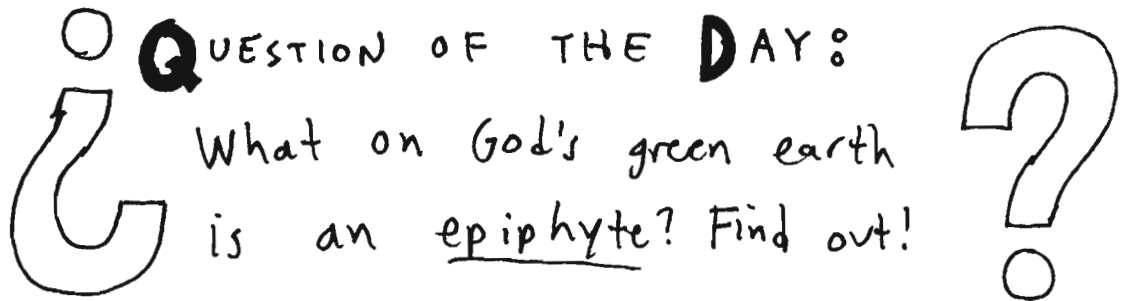 ¿ QUESTION OF THE DAY: ?
What on God's green earth
is an epiphyte? Find out!